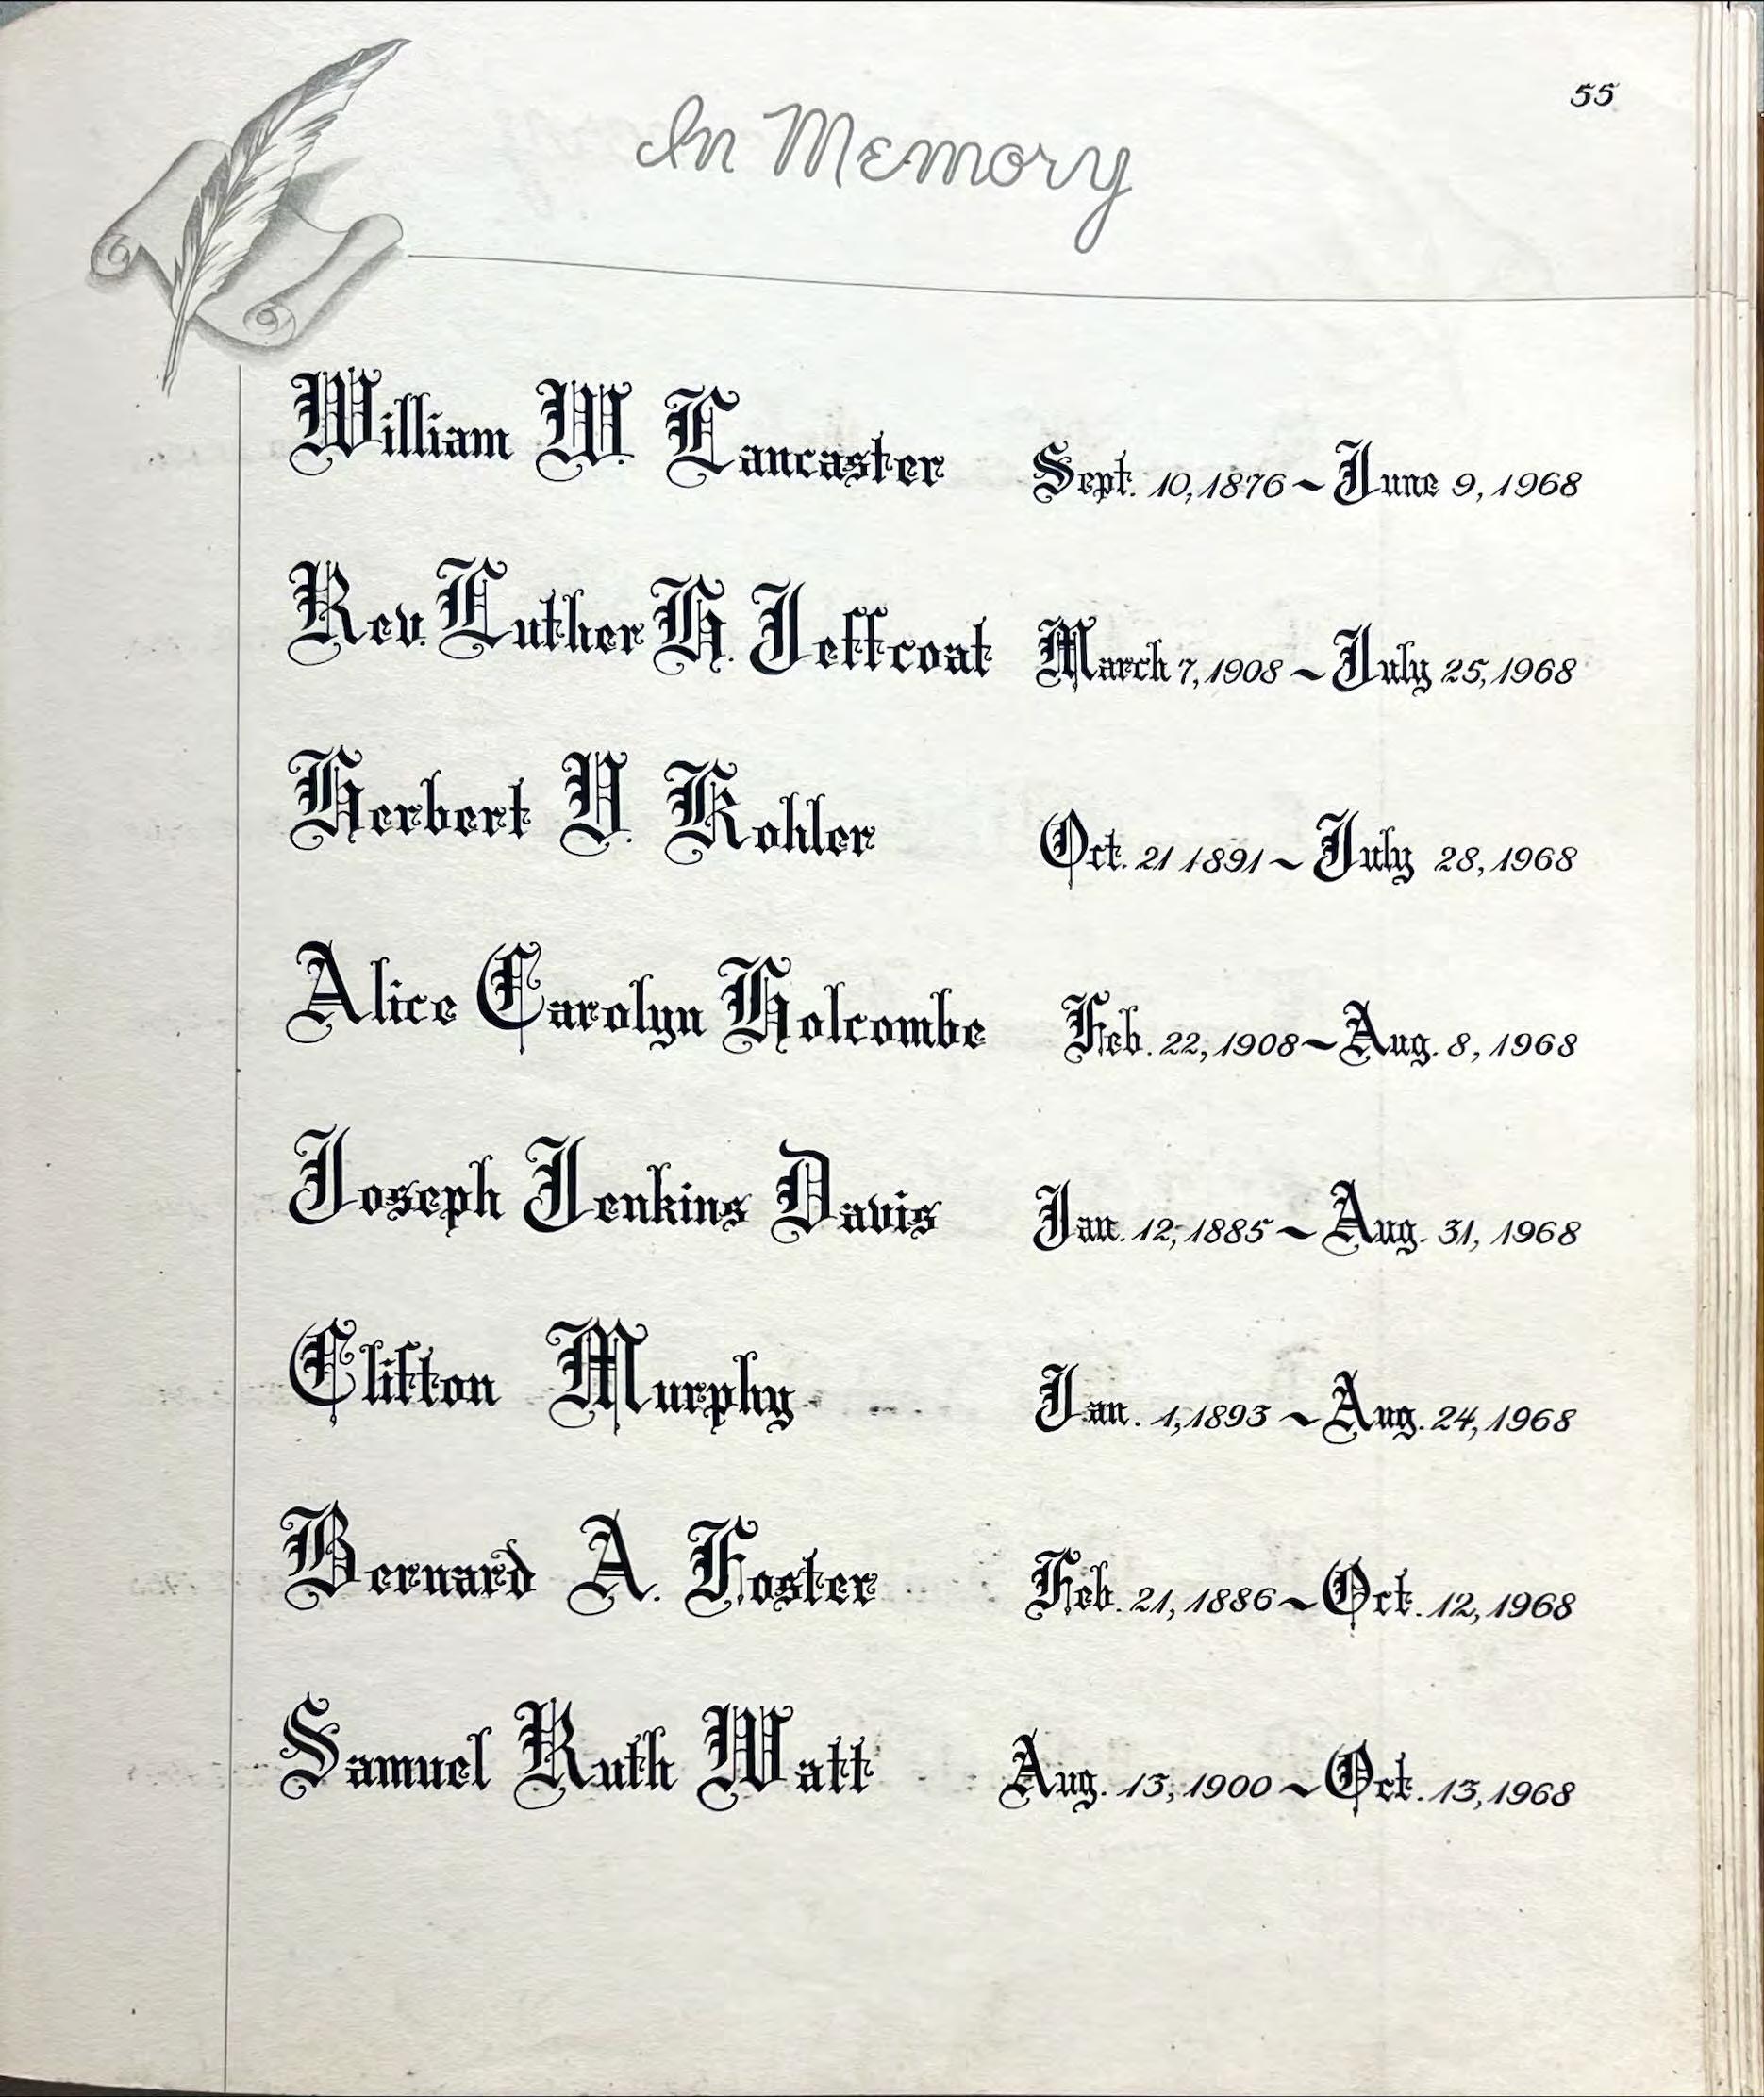 55
In Memory
William W. Lancaster Sept. 10, 1876 ~ June 9, 1968
Rev. Luther H. Jeffcoat March 7, 1908 ~ July 25, 1968
Herbert V. Kohler Oct. 21 1891 ~ July 28, 1968
Alice Carolyn Holcombe Feb. 22, 1908 ~ Aug. 8, 1968
Joseph Jenkins Davis Jan. 12, 1885 ~ Aug. 31, 1968
Clifton Murphy Jan. 1, 1893 ~ Aug. 24, 1968
Bernard A. Foster Feb. 21, 1886 ~ Oct. 12, 1968
Samuel Ruth Watt Aug. 13, 1900 ~ Oct. 13, 1968